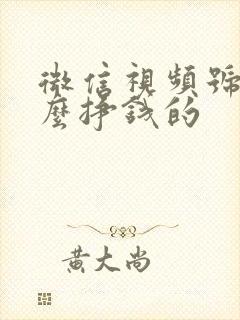 微信視頻號
麼掙錢的
黃大尚